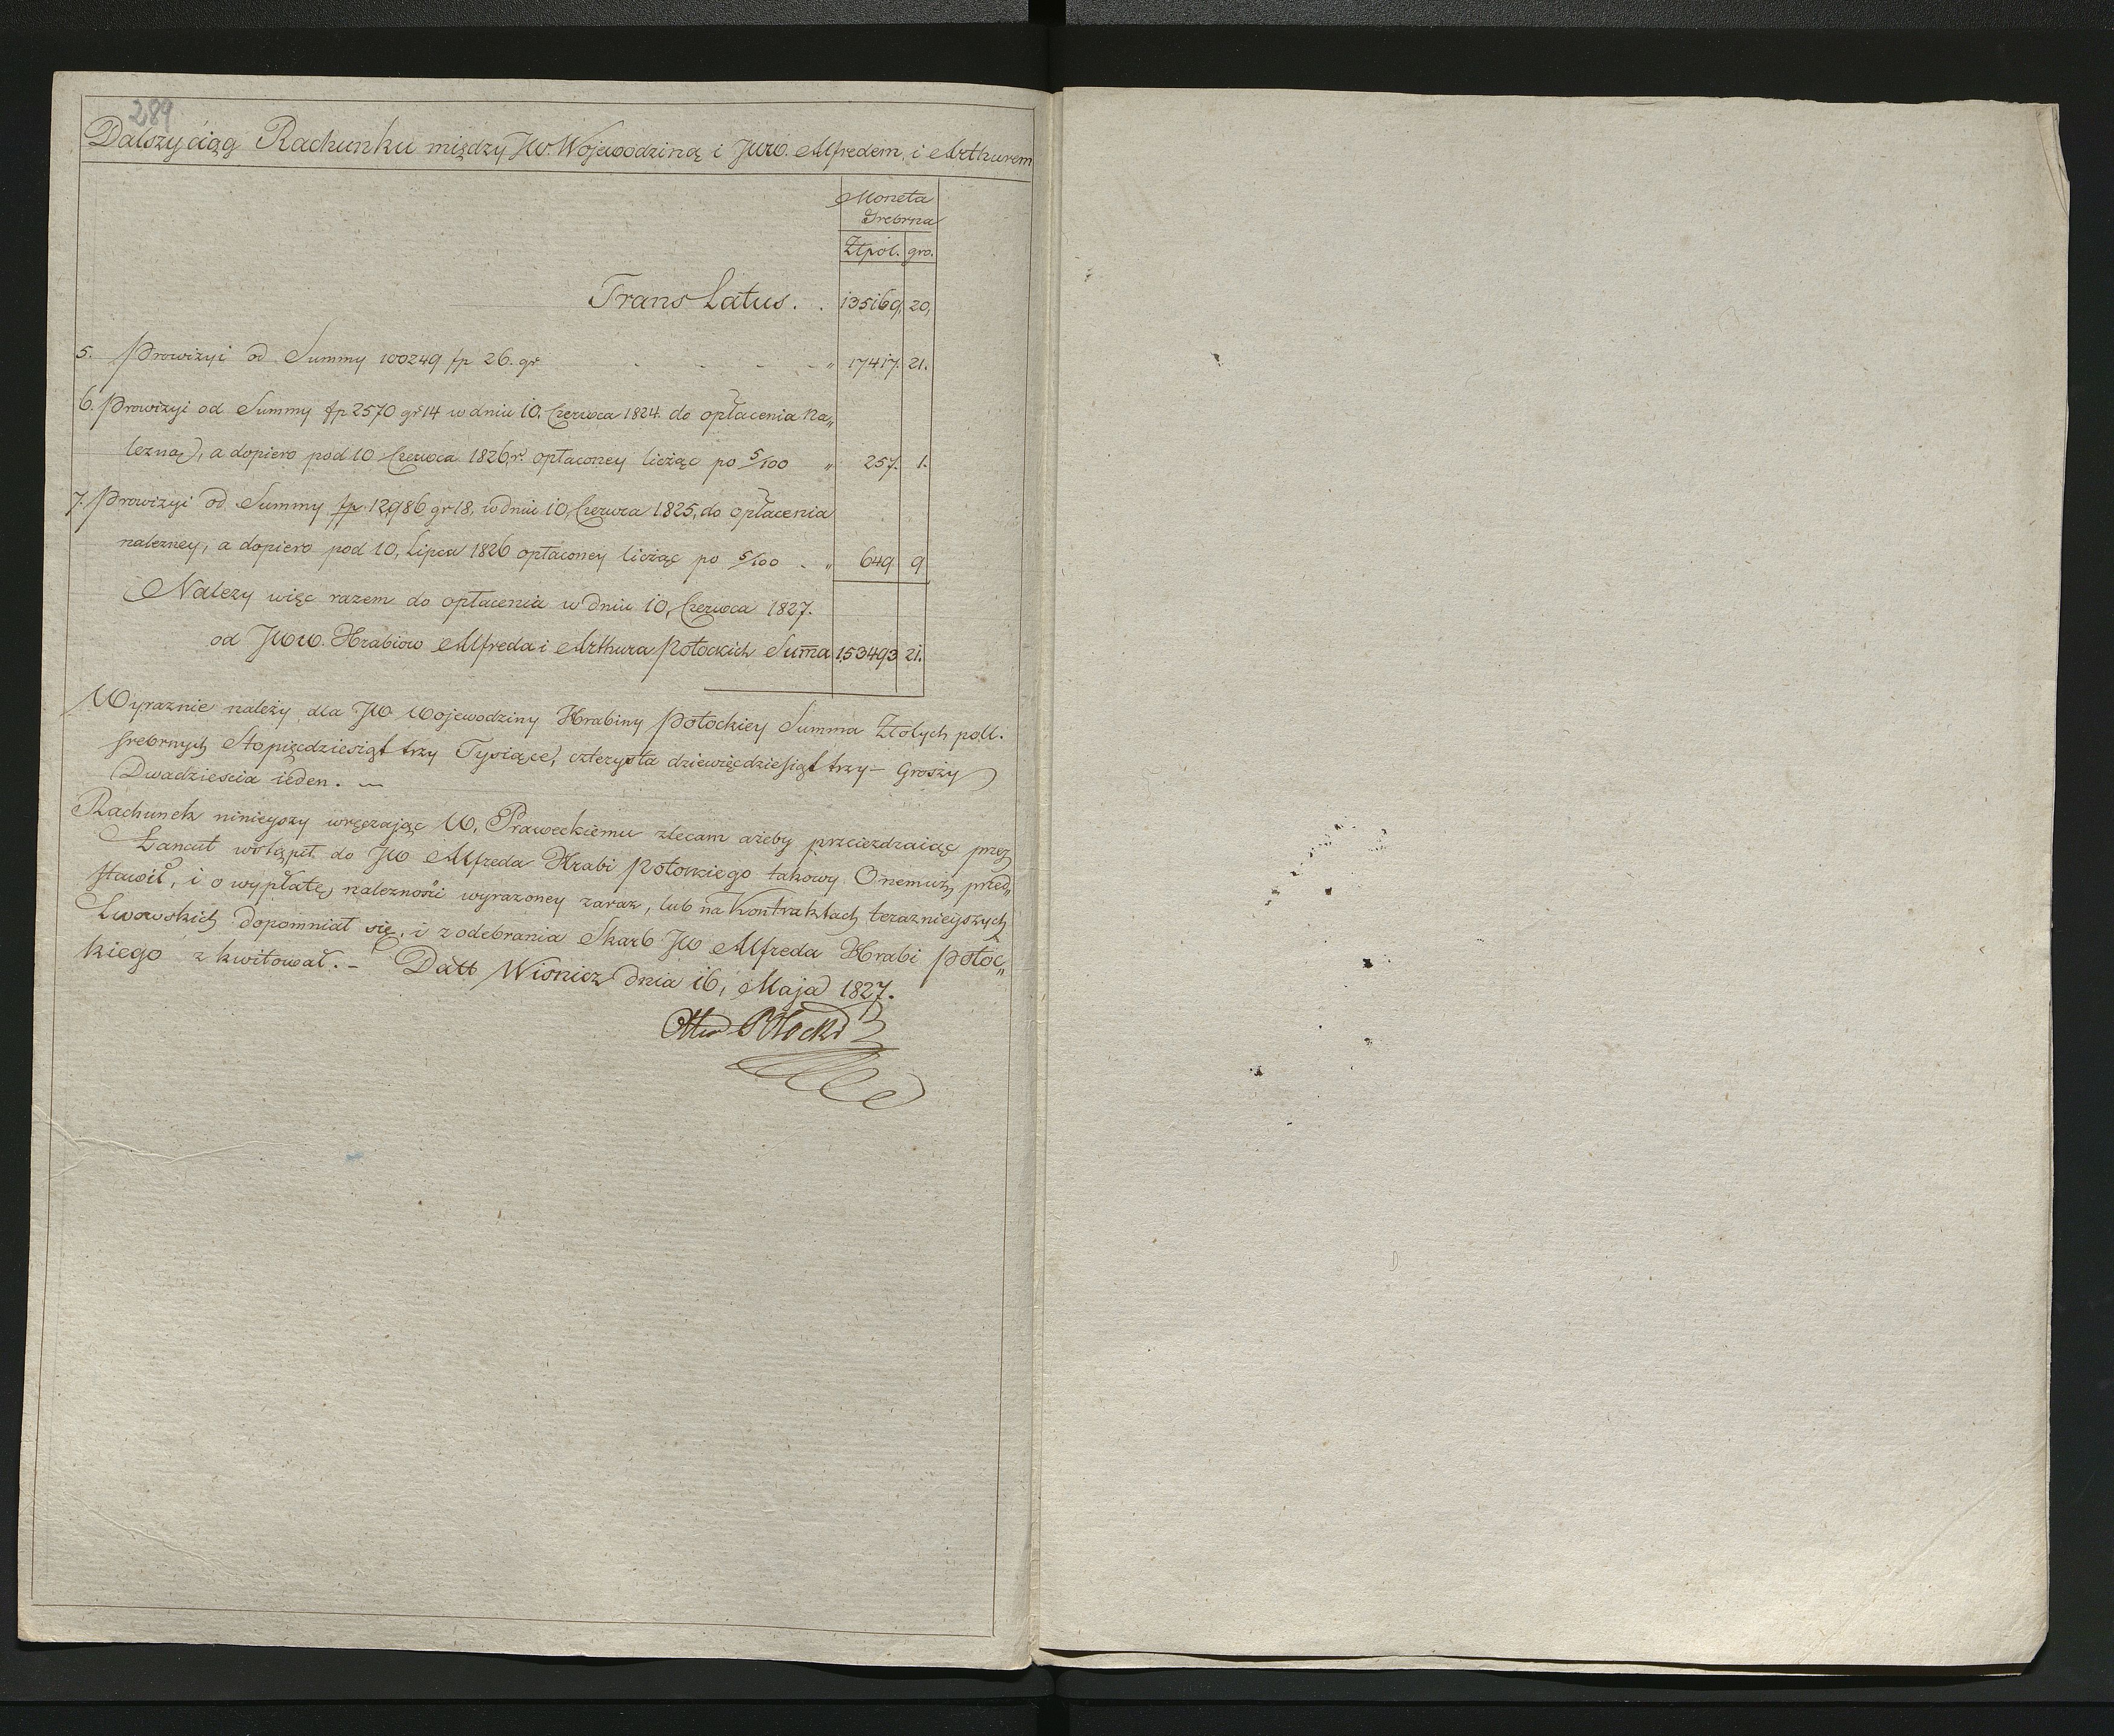 289
Dalszy ciąg Rachunku między JW. Wojewodziną i JWW. Alfredem, i Arthurem
Moneta
Srebrna
Złpol. gro.
Trans Latus. . 135169, 20,
5. Prowizyi od Summy 100249 fp 26. gr . . . . " 17417. 21.
6. Prowizyi od Summy fp 2570 gr 14 w dniu 10. Czerwca 1824. do opłacenia Na„
lezną, a dopiero pod 10 Czerwca 1826 r. opłaconey licżąc po 5/100 " 257. 1.
7. Prowizyi od Summy fp. 12986 gr 18, w dniu 10, Czerwca 1825, do opłacenia
nalezney, a dopiero pod 10, Lipca 1826 opłaconey licżąc po 5/100 . " 649 9
Nalezy więc razem do opłacenia w dniu 10, Czerwca 1827.
od JWW. Hrabiow Alfreda i Arthura Potockich Suma 153493 21.
Wyraznie należy dla JW Wojewodziny Hrabiny Potockiey Summa Złotych poll.
srebrnych Stopięcdziesiąt trzy Tysiące, czterysta dziewięcdziesiąt trzy – Groszy
Dwadziescia ieden. –
Rachunek ninieyszy wręczając W. Praweckiemu zlecam ażeby przeiezdzaiąc przez
Łancut wstąpił do JW Alfreda Hrabi Potockiego takowy Onemuż przed„
stawił, i o wypłatę nalezności wyrazoney zaraz, lub na Kontraktach terazniejszych
Lwowskich dopomniał się, i z odebrania Skarb JW Alfreda Hrabi Potoc„
kiego zkwitował. – Datt Wisnicz dnia 16, Maja 1827.
Potocki